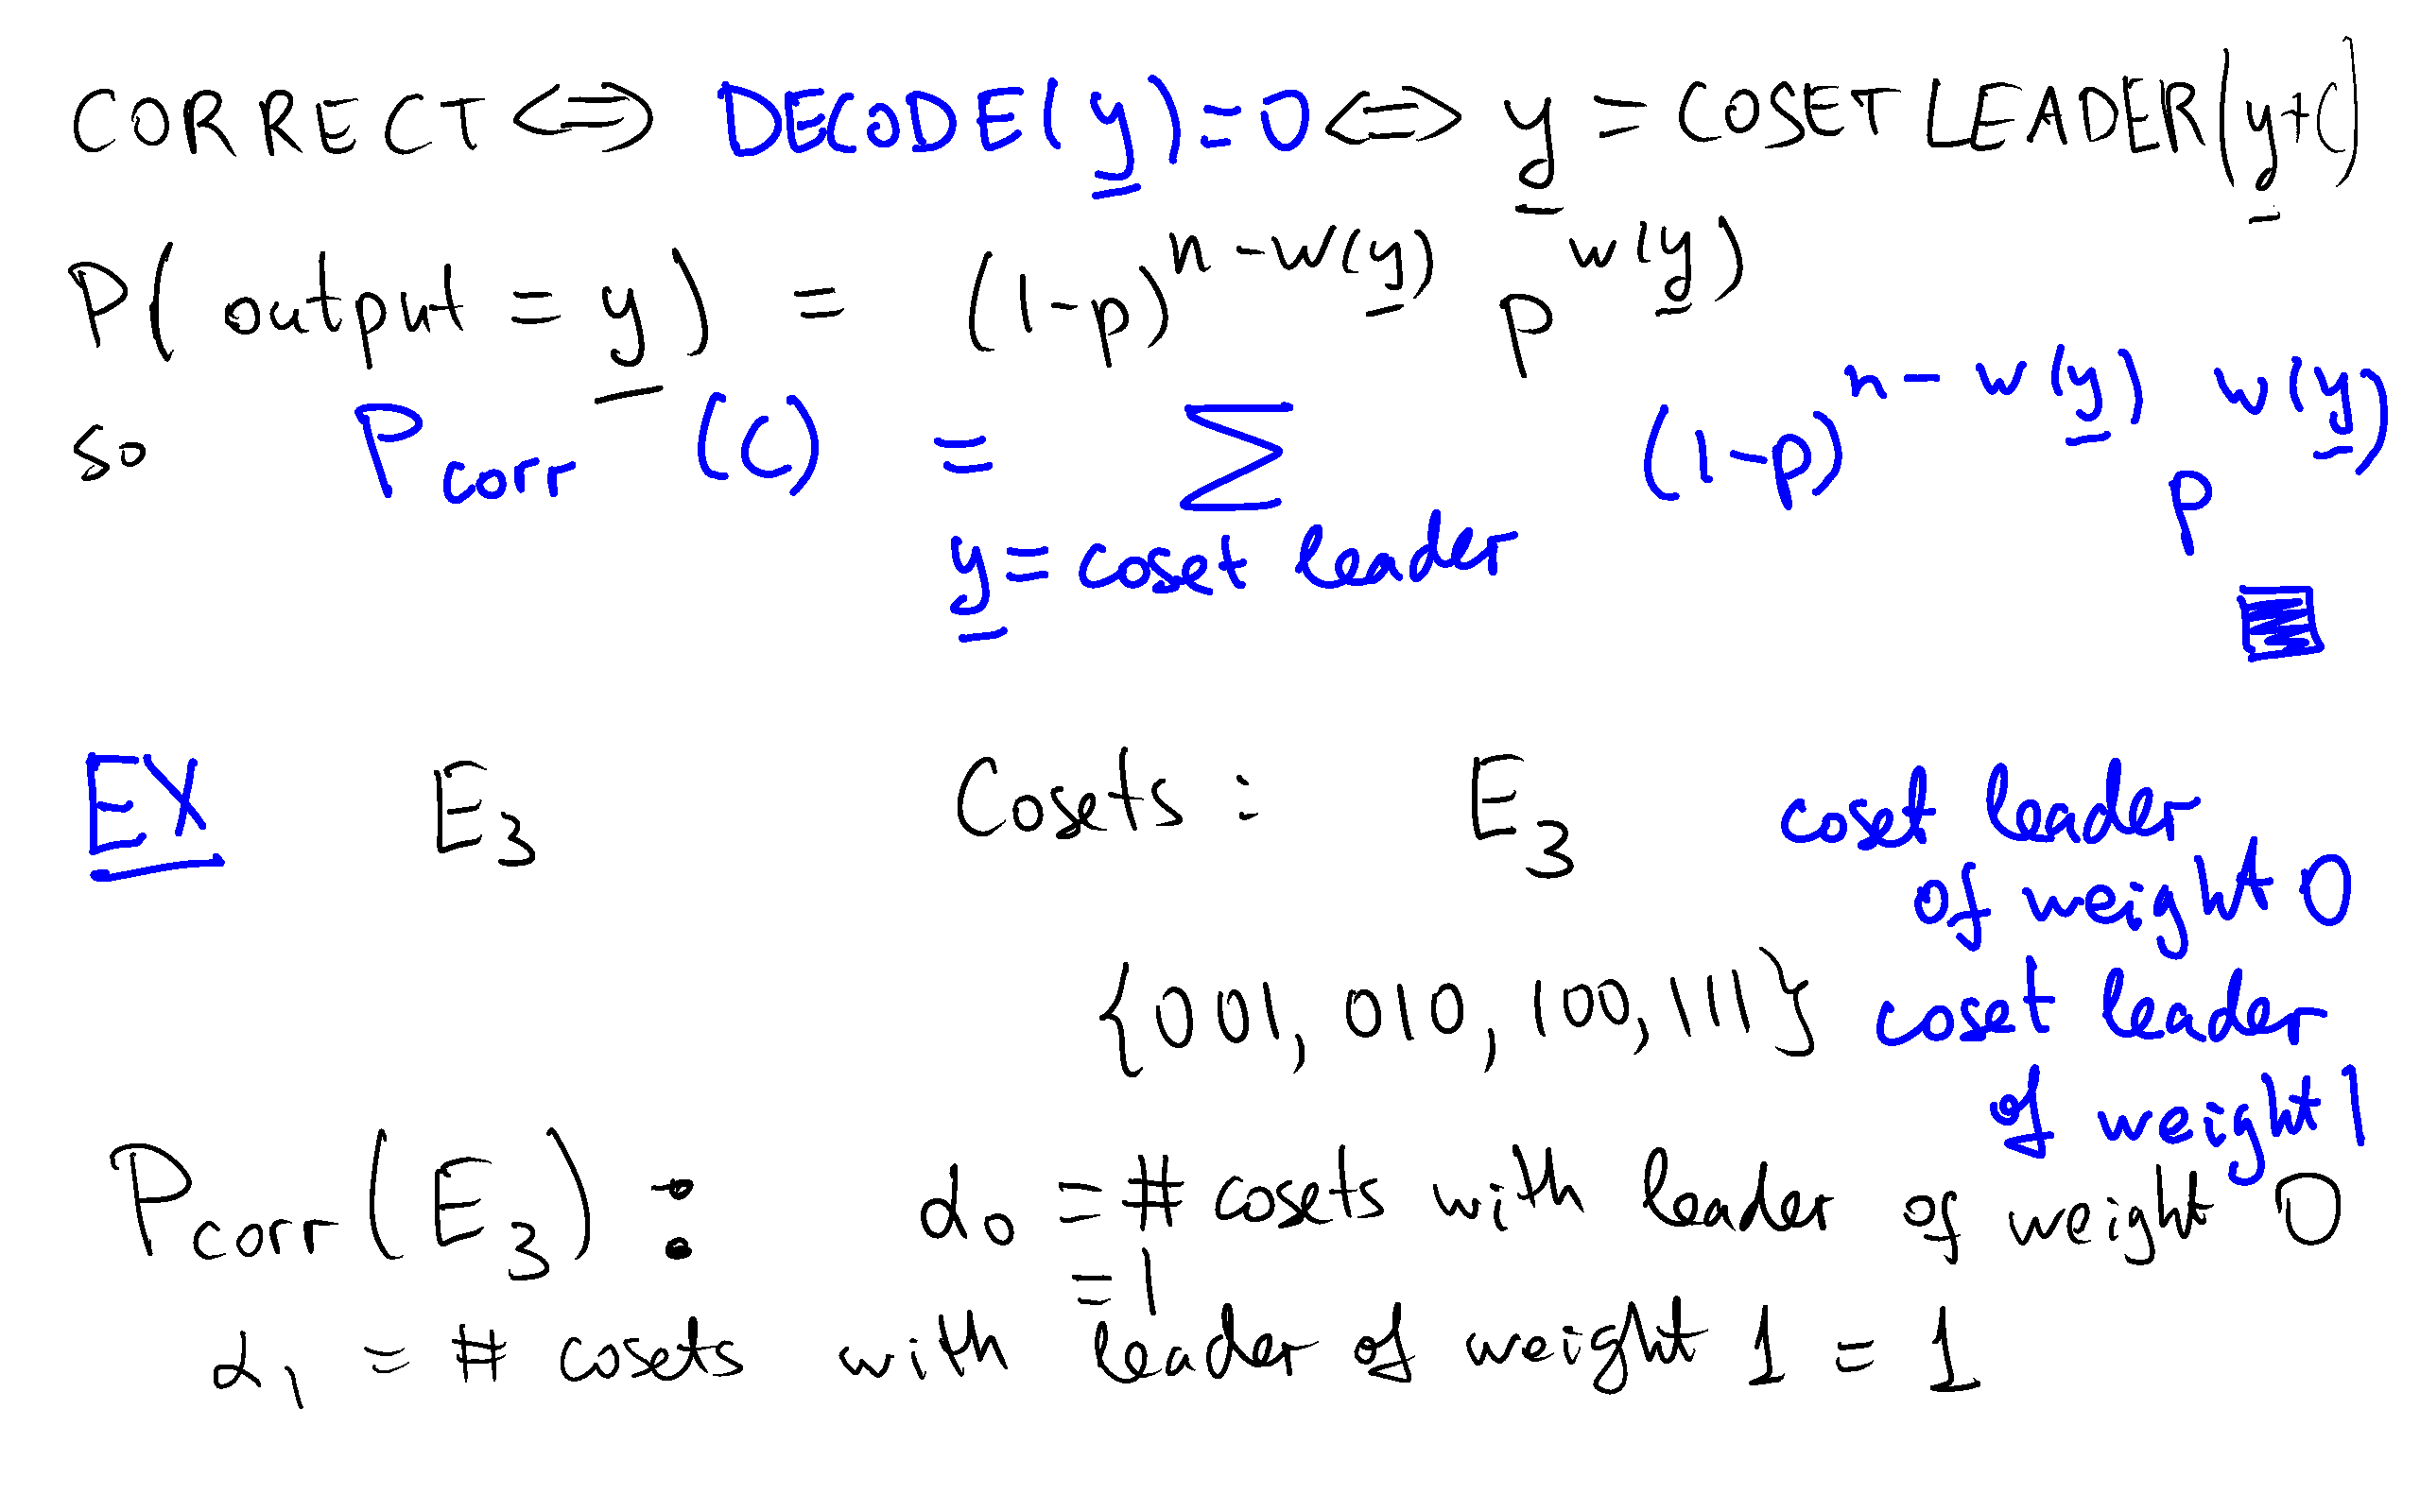 CORRECT ⟺ DECODE(y) = 0 ⟺ y = COSET LEADER(y+C)
P( output = y ) = (1-p)^{n-w(y)} p^{w(y)}
so P_corr (C) = ∑_{y = coset leader} (1-p)^{n-w(y)} p^{w(y)}
EX E_3 Cosets : E_3 coset leader
of weight 0
{001, 010, 100, 111} coset leader
of weight 1
P_corr(E_3) : α_0 = # cosets with leader of weight 0
= 1
α_1 = # cosets with leader of weight 1 = 1